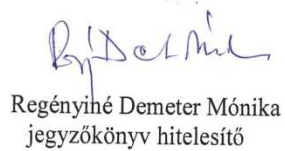 Regényiné Demeter Mónika
jegyzőkönyv hitelesítő